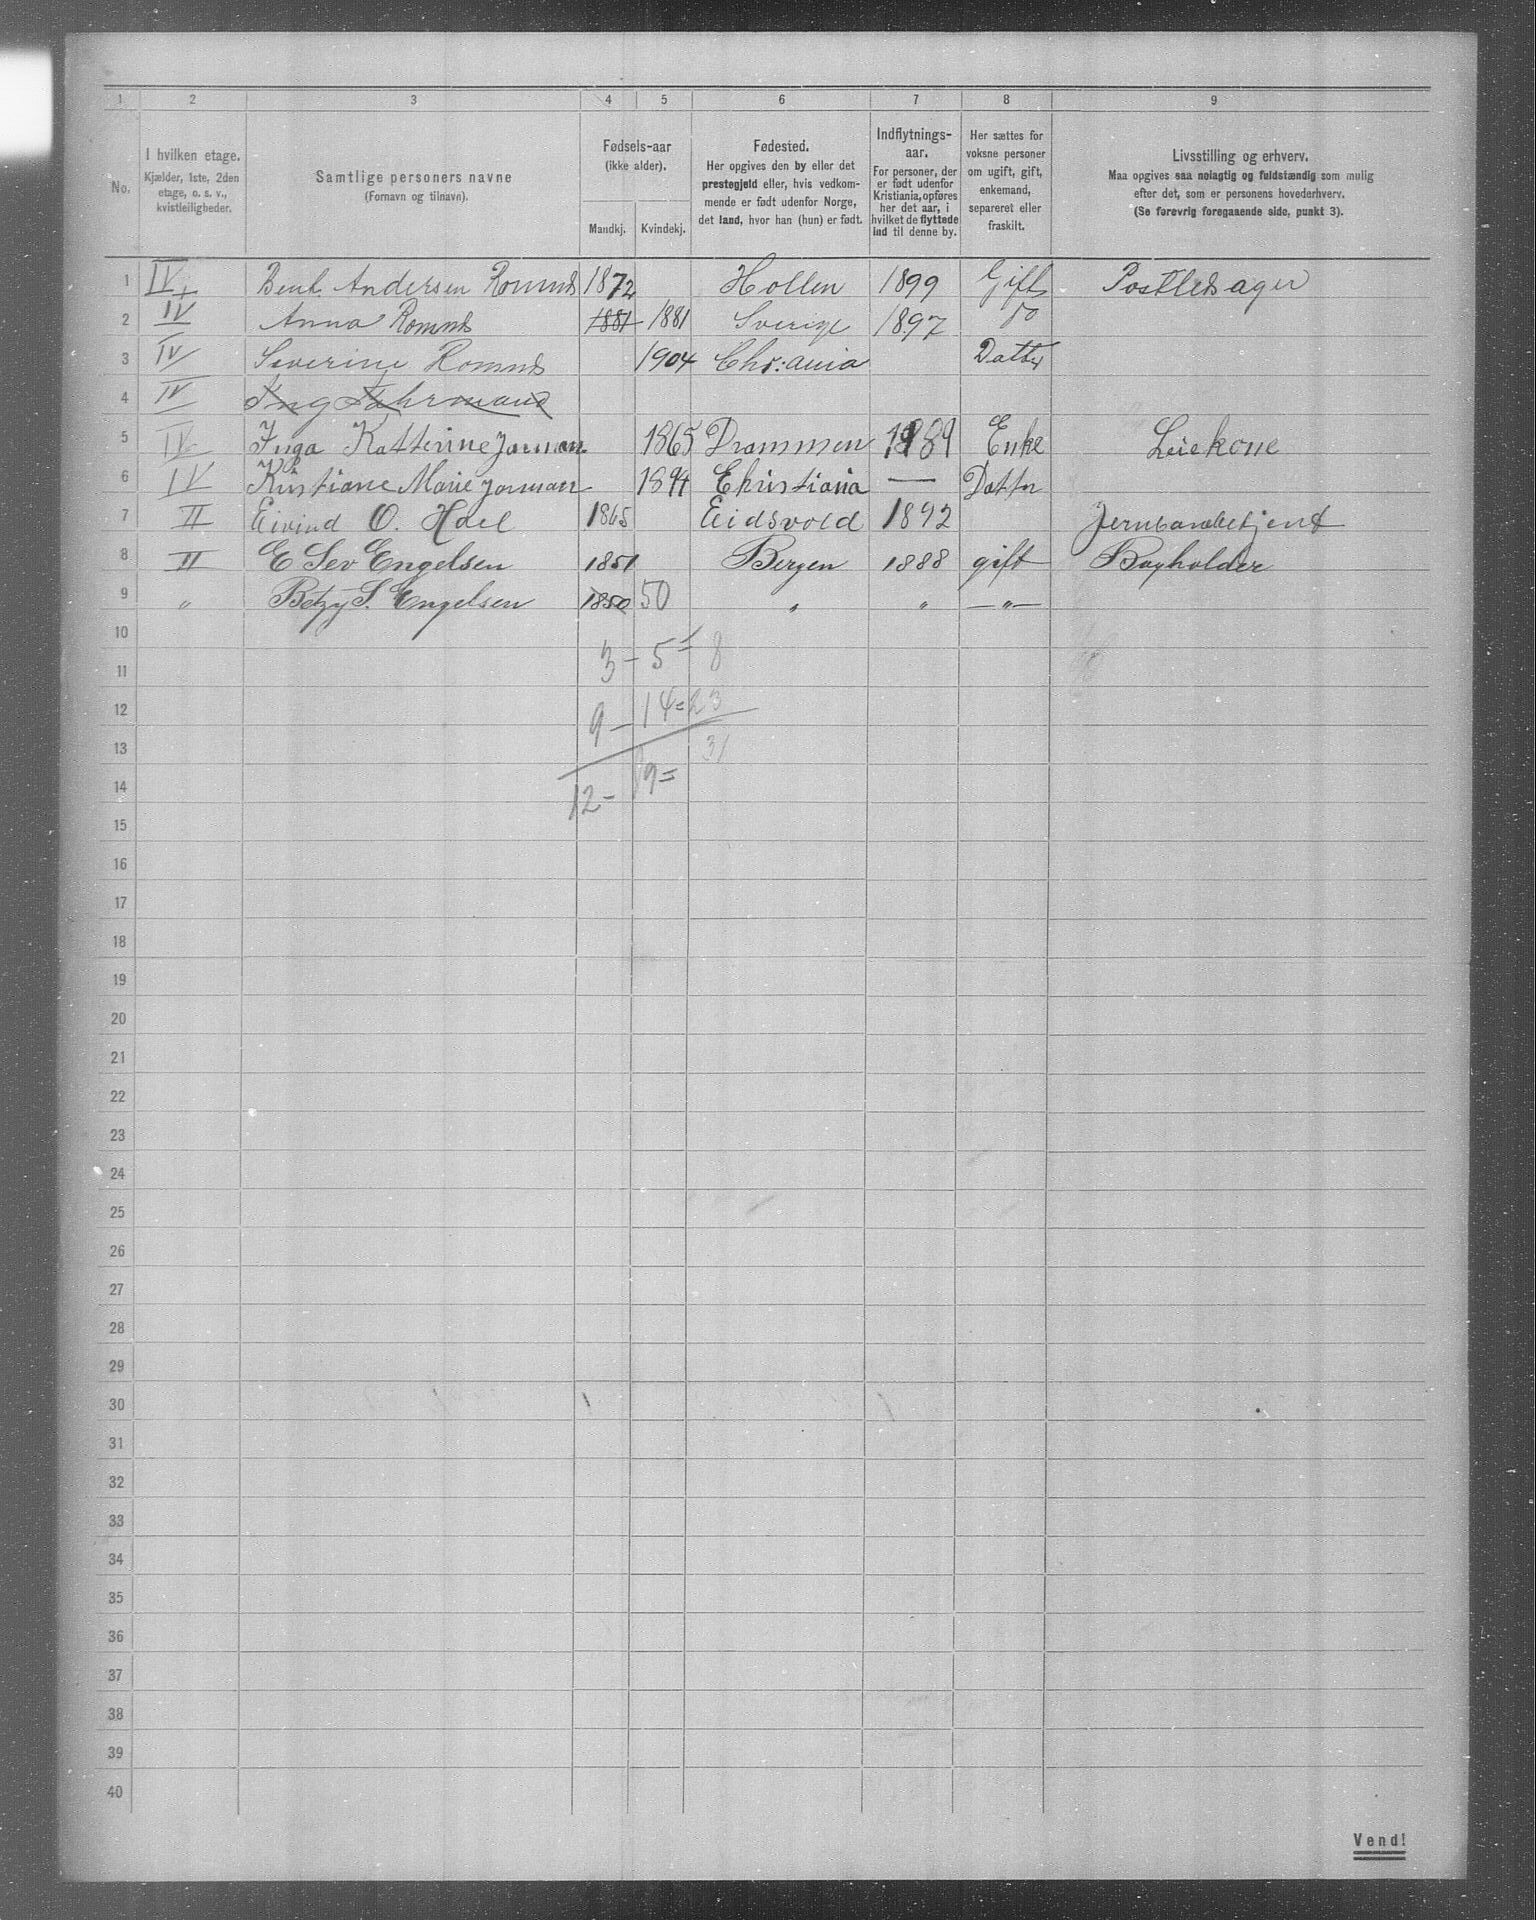 1 2 3 4 5 6 7 8 9
No.
I hvilken etage.
Kjælder, 1ste, 2den
etage, o. s. v.,
kvistleiligheder.
Samtlige personers navne
(Fornavn og tilnavn).
Fødsels-aar
(ikke alder).
Mandkj. Kvindekj.
Fødested.
Her opgives den by eller det
prestegjeld eller, hvis vedkom-
mende er født udenfor Norge,
det land, hvor han (hun) er født.
Indflytnings-
aar.
For personer, der
er født udenfor
Kristiania, opføres
her det aar, i
hvilket de flyttede
ind til denne by.
Her sættes for
voksne personer
om ugift, gift,
enkemand,
separeret eller
fraskilt.
Livsstilling og erhverv.
Maa opgives saa nøiagtig og fuldstændig som mulig
efter det, som er personens hovederhverv.
(Se forøvrig foregaaende side, punkt 3).
1 IV Bent. Andersen 1872 Hollen 1899 Gift
2 IV Anna 1881 1881 Sverige 1897 do
3 IV Severine 1904 Chr:ania Datter
4 IV
5 IV Inga Katterine Jarman 1865 Drammen 1889 Enke Leiekone
6 IV Kristiane Marie Jarman 1894 Christiania — Datter
7 II Eivind O. Hoel 1865 Eidsvold 1892 Jernbanebetjent
8 II E Sev Engelsen 1851 Bergen 1888 gift Bogholder
9 " Betzy S. Engelsen 1850 50 " " — " —
10
3 - 5 = 8
11
12
9 - 14 = 23
13
31
14
12 - 19 =
15
16
17
18
19
20
21
22
23
24
25
26
27
28
29
30
31
32
33
34
35
36
37
38
39
40
Vend!